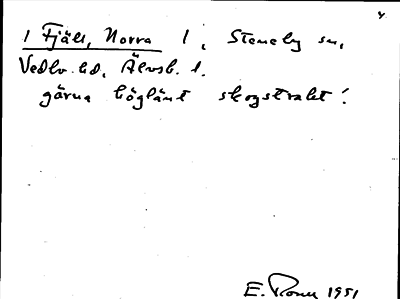 1 Fjäll, Norra 1, Steneby sn,
Vedbo hd, Älvsb. l.
gärna höglänt skogstrakt!
E. Ronn 1951